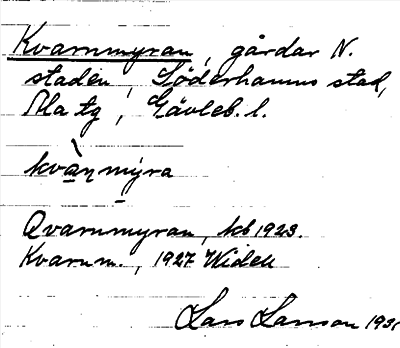 Kvarnmyran, gårdar N.
staden, Söderhamns stad,
Ala tg, Gävleb. l.
kvà̱ɳmýra
Qvarnmyran, kb 1923.
Kvarnm., 1927 Widell
Lars Larsson 1931